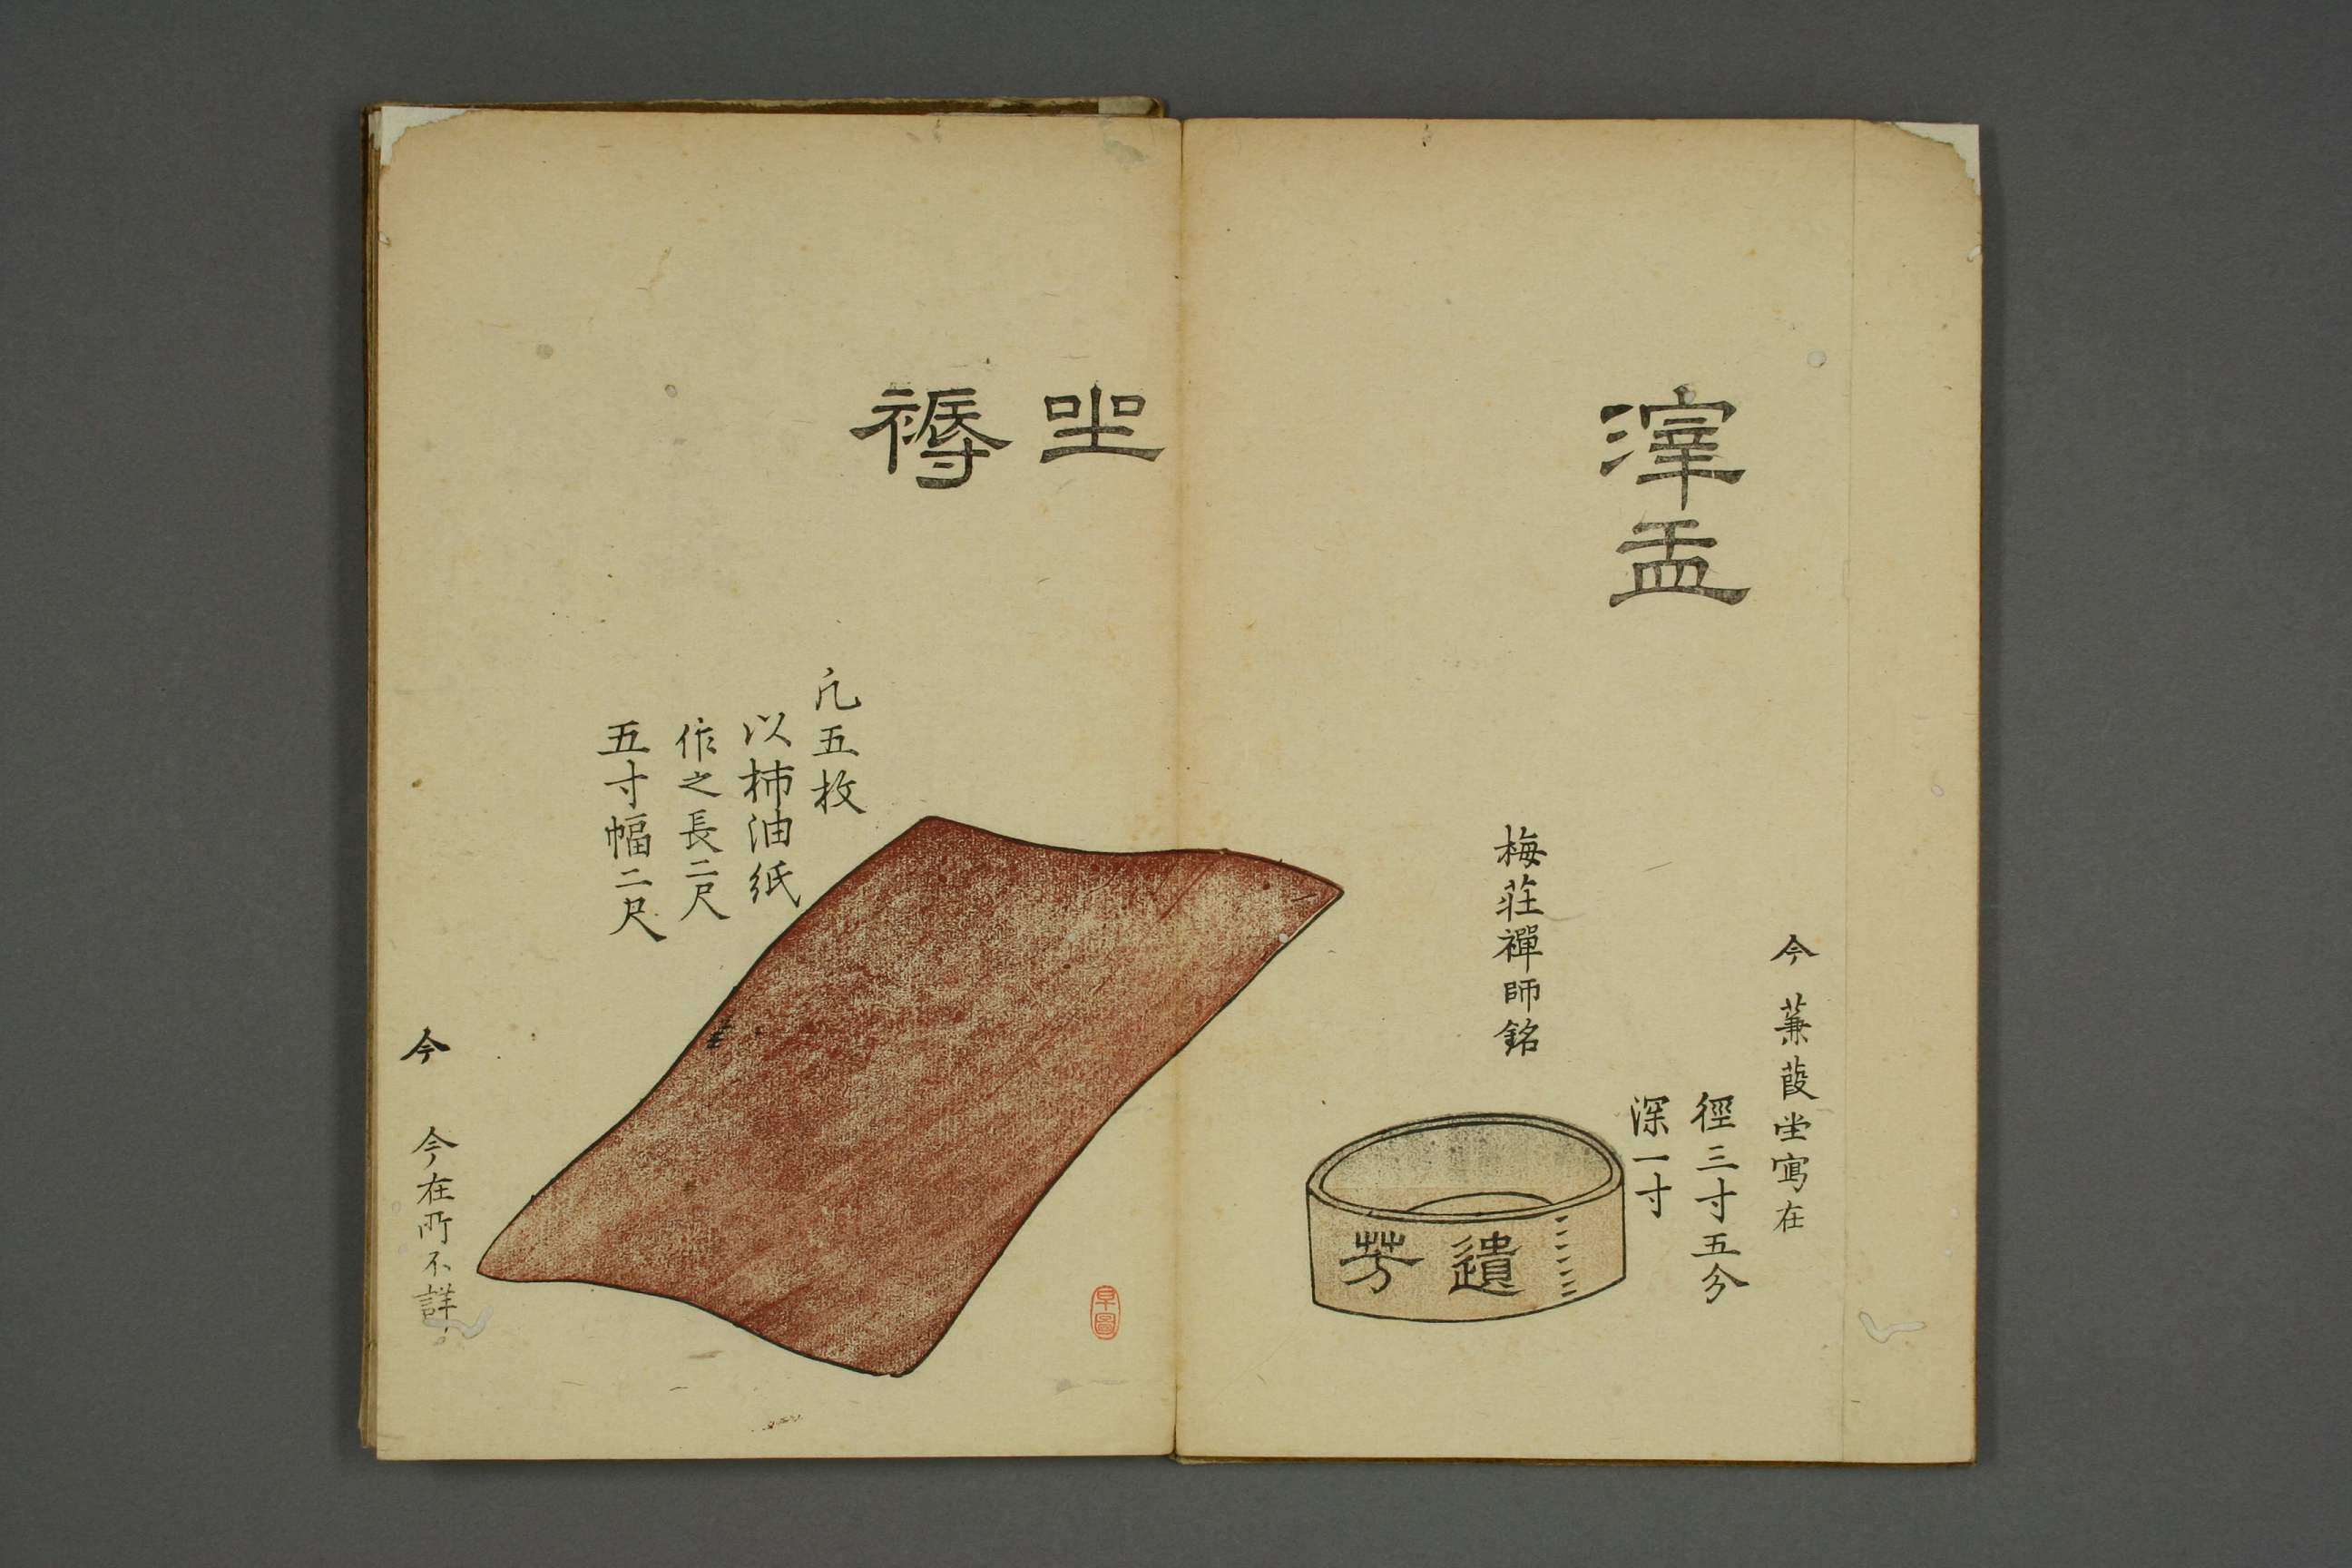 滓盂
今 蒹葭堂寫在
徑三寸五分
深一寸
梅莊禪師銘
遺芳
坐褥
凢五枚
以柿油紙
作之長二尺
五寸幅二尺
今
今在所不詳
早圖